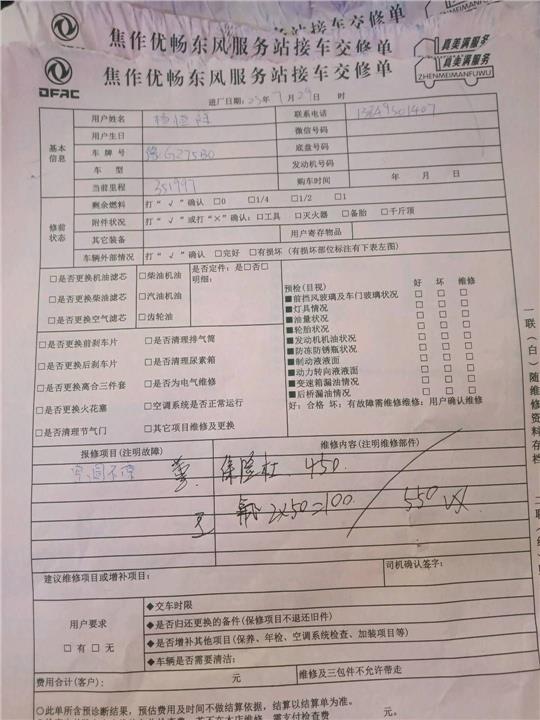 焦作优畅东风服务站接车交修单
焦作优畅东风服务站接车交修单
真美满服务
ZHENMEIMANFUWU
DFAC
进厂日期：23年7月29日 时
基本信息
用户姓名
联系电话
用户生日
微信号码
车牌号 豫G275B0
底盘号码
车型
发动机号码
当前里程 351997
购车时间 年 月 日
修前状态
剩余燃料 打“√”确认 □0 □1/4 □1/2 □1
附件状况 打“√”或打“×”确认：□工具 □灭火器 □备胎 □千斤顶
其它装备 用户寄存物品
车辆外部情况 打“√”确认 □完好 □有损坏（有损坏部位标注有下表左图）
□是否更换机油滤芯 □柴油机油
□是否更换柴油滤芯 □汽油机油
□是否更换空气滤芯 □齿轮油
是否定件：是□否□
明细：
□是否更换前刹车片 □是否清理排气筒
□是否更换后刹车片 □是否清理尿素箱
□是否更换离合三件套 □是否为电气维修
□是否更换火花塞 □空调系统是否正常运行
□是否清理节气门 □其它项目维修及更换
预检(目视) 好 坏 维修
■前挡风玻璃及车门玻璃状况 □ □ □
■灯具情况 □ □ □
■油量状况 □ □ □
■轮胎状况 □ □ □
■发动机机油状况 □ □ □
■防冻防锈瓶状况 □ □ □
■制动液液面 □ □ □
■动力转向液液面 □ □ □
■变速箱漏油情况 □ □ □
■后桥漏油情况 □ □ □
好：合格 坏：有故障需维修维修：用户确认维修
报修项目(注明故障)
维修内容(注明维修部件)
保险杠 450
2×50=100
550
建议维修项目或增补项目：
司机确认签字：
用户要求
□有 □无
◆交车时限
◆是否归还更换的备件(保修项目不退还旧件)
◆是否增补其他项目(保养、年检、空调系统检查、加装项目等)
◆车辆是否需要清洁：
费用合计(客户)： 元
维修及三包件不允许带走
○此单所含预诊断结果，预估费用及时间不做结算依据，结算以结算单为准。
一联（白）随维修资料存档